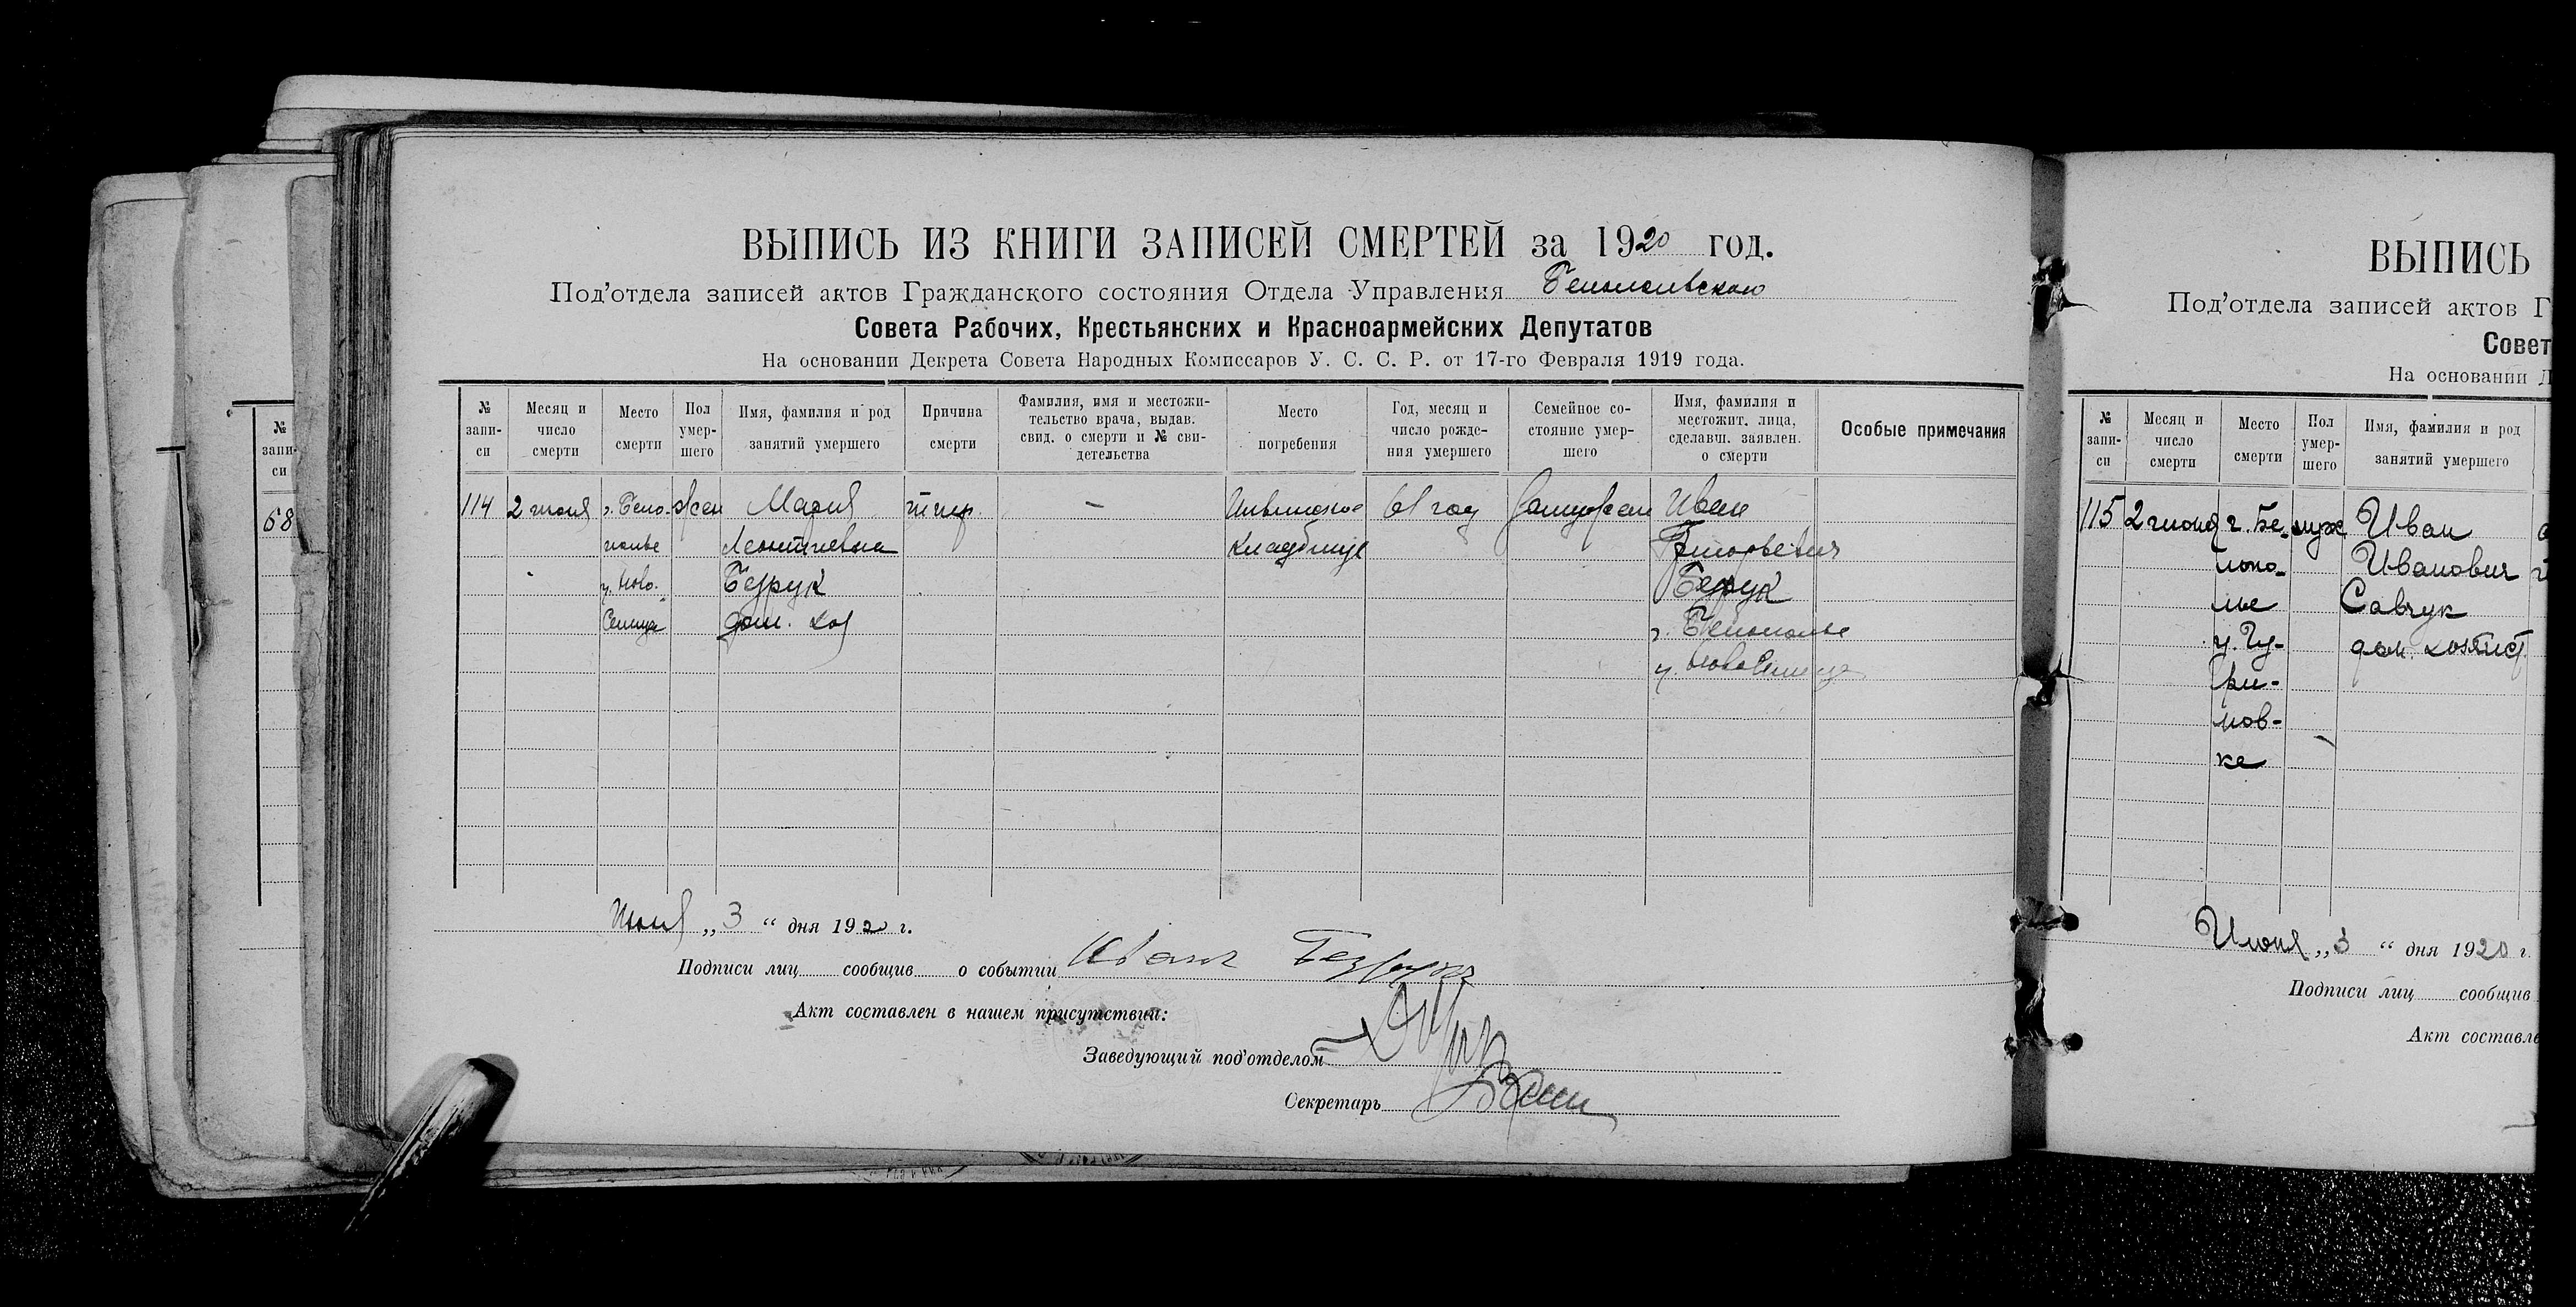 ВЫПИСЬ ИЗ КНИГИ ЗАПИСЕЙ СМЕРТЕЙ за 1920 год.
Под'отдела записей актов Гражданского состояния Отдела Управления Белопольского
Совета Рабочих, Крестьянских и Красноармейских Депутатов
На основании Декрета Совета Народных Комиссаров У. С. С. Р. от 17-го Февраля 1919 года.
№ запи-си
Месяц и число смерти
Место смерти
Пол умер-шего
Имя, фамилия и род занятий умершего
Причина смерти
Фамилия, имя и местожи-тельство врача, выдав. свид. о смерти и № сви-детельства
Место погребения
Год, месяц и число рожде-ния умершего
Семейное со-стояние умер-шего
Имя, фамилия и местожит. лица, сделавш. заявлен. о смерти
Особые примечания
114 2 июня г. Бело- жен Мария — 61 год Иван
полье Леонтиевна кладбище Григорьевич
у. Ново- Безрук Безрук
Селица дом. хоз г. Белополье
у. НовоСелица
Июня „3“ дня 1920 г.
Подписи лиц сообщив о событии Иван Безрук
Акт составлен в нашем присутствии:
Заведующий под'отделом
Секретарь
№ запи-си
68
ВЫПИСЬ
Под'отдела записей актов Г
Совет
На основании Д
№ запи-си
Месяц и число смерти
Место смерти
Пол умер-шего
Имя, фамилия и род занятий умершего
115 2 июня г. Бе- муж Иван
лопо- Иванович
лье Савчук
у. Гу- дом. хозяист.
ри-
нов-
ке
Июня „3“ дня 1920 г.
Подписи лиц сообщив
Акт составле